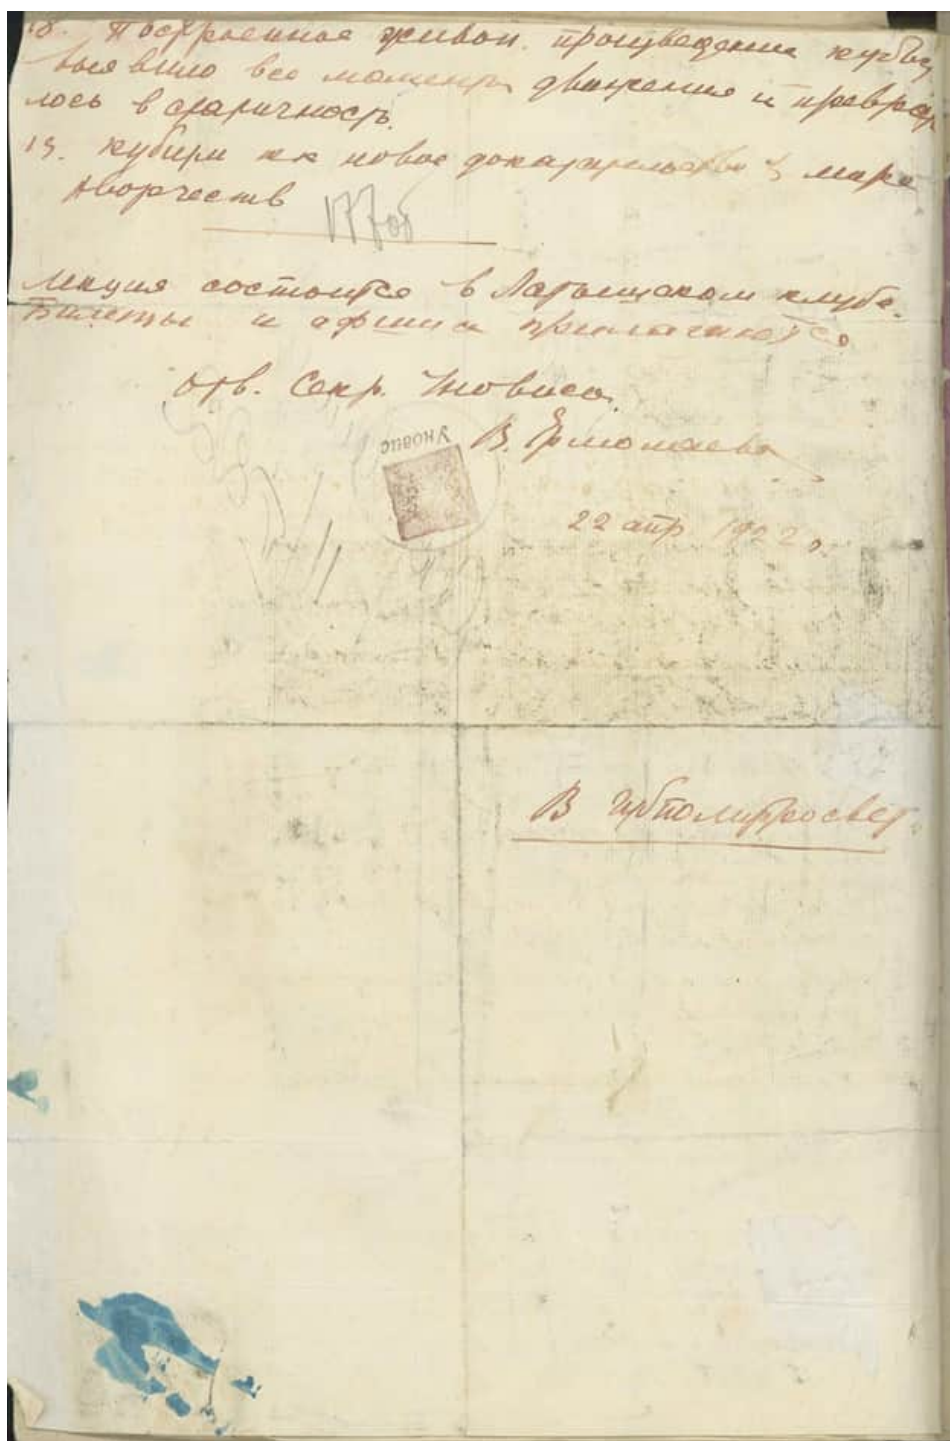 18. Построенное живоп. произведение кубизм
выявило все моменты движения и преврат
лось в статичность.
19. кубизм как новое доказательство мира
творчеств
177об
лекция состоится в Латышском клубе.
Билеты и афиши прилагаются
Отв. Секр. Уновиса
В. Ермолаева
Уновис
22 апр 1922 г.
В Губполитпросвет.